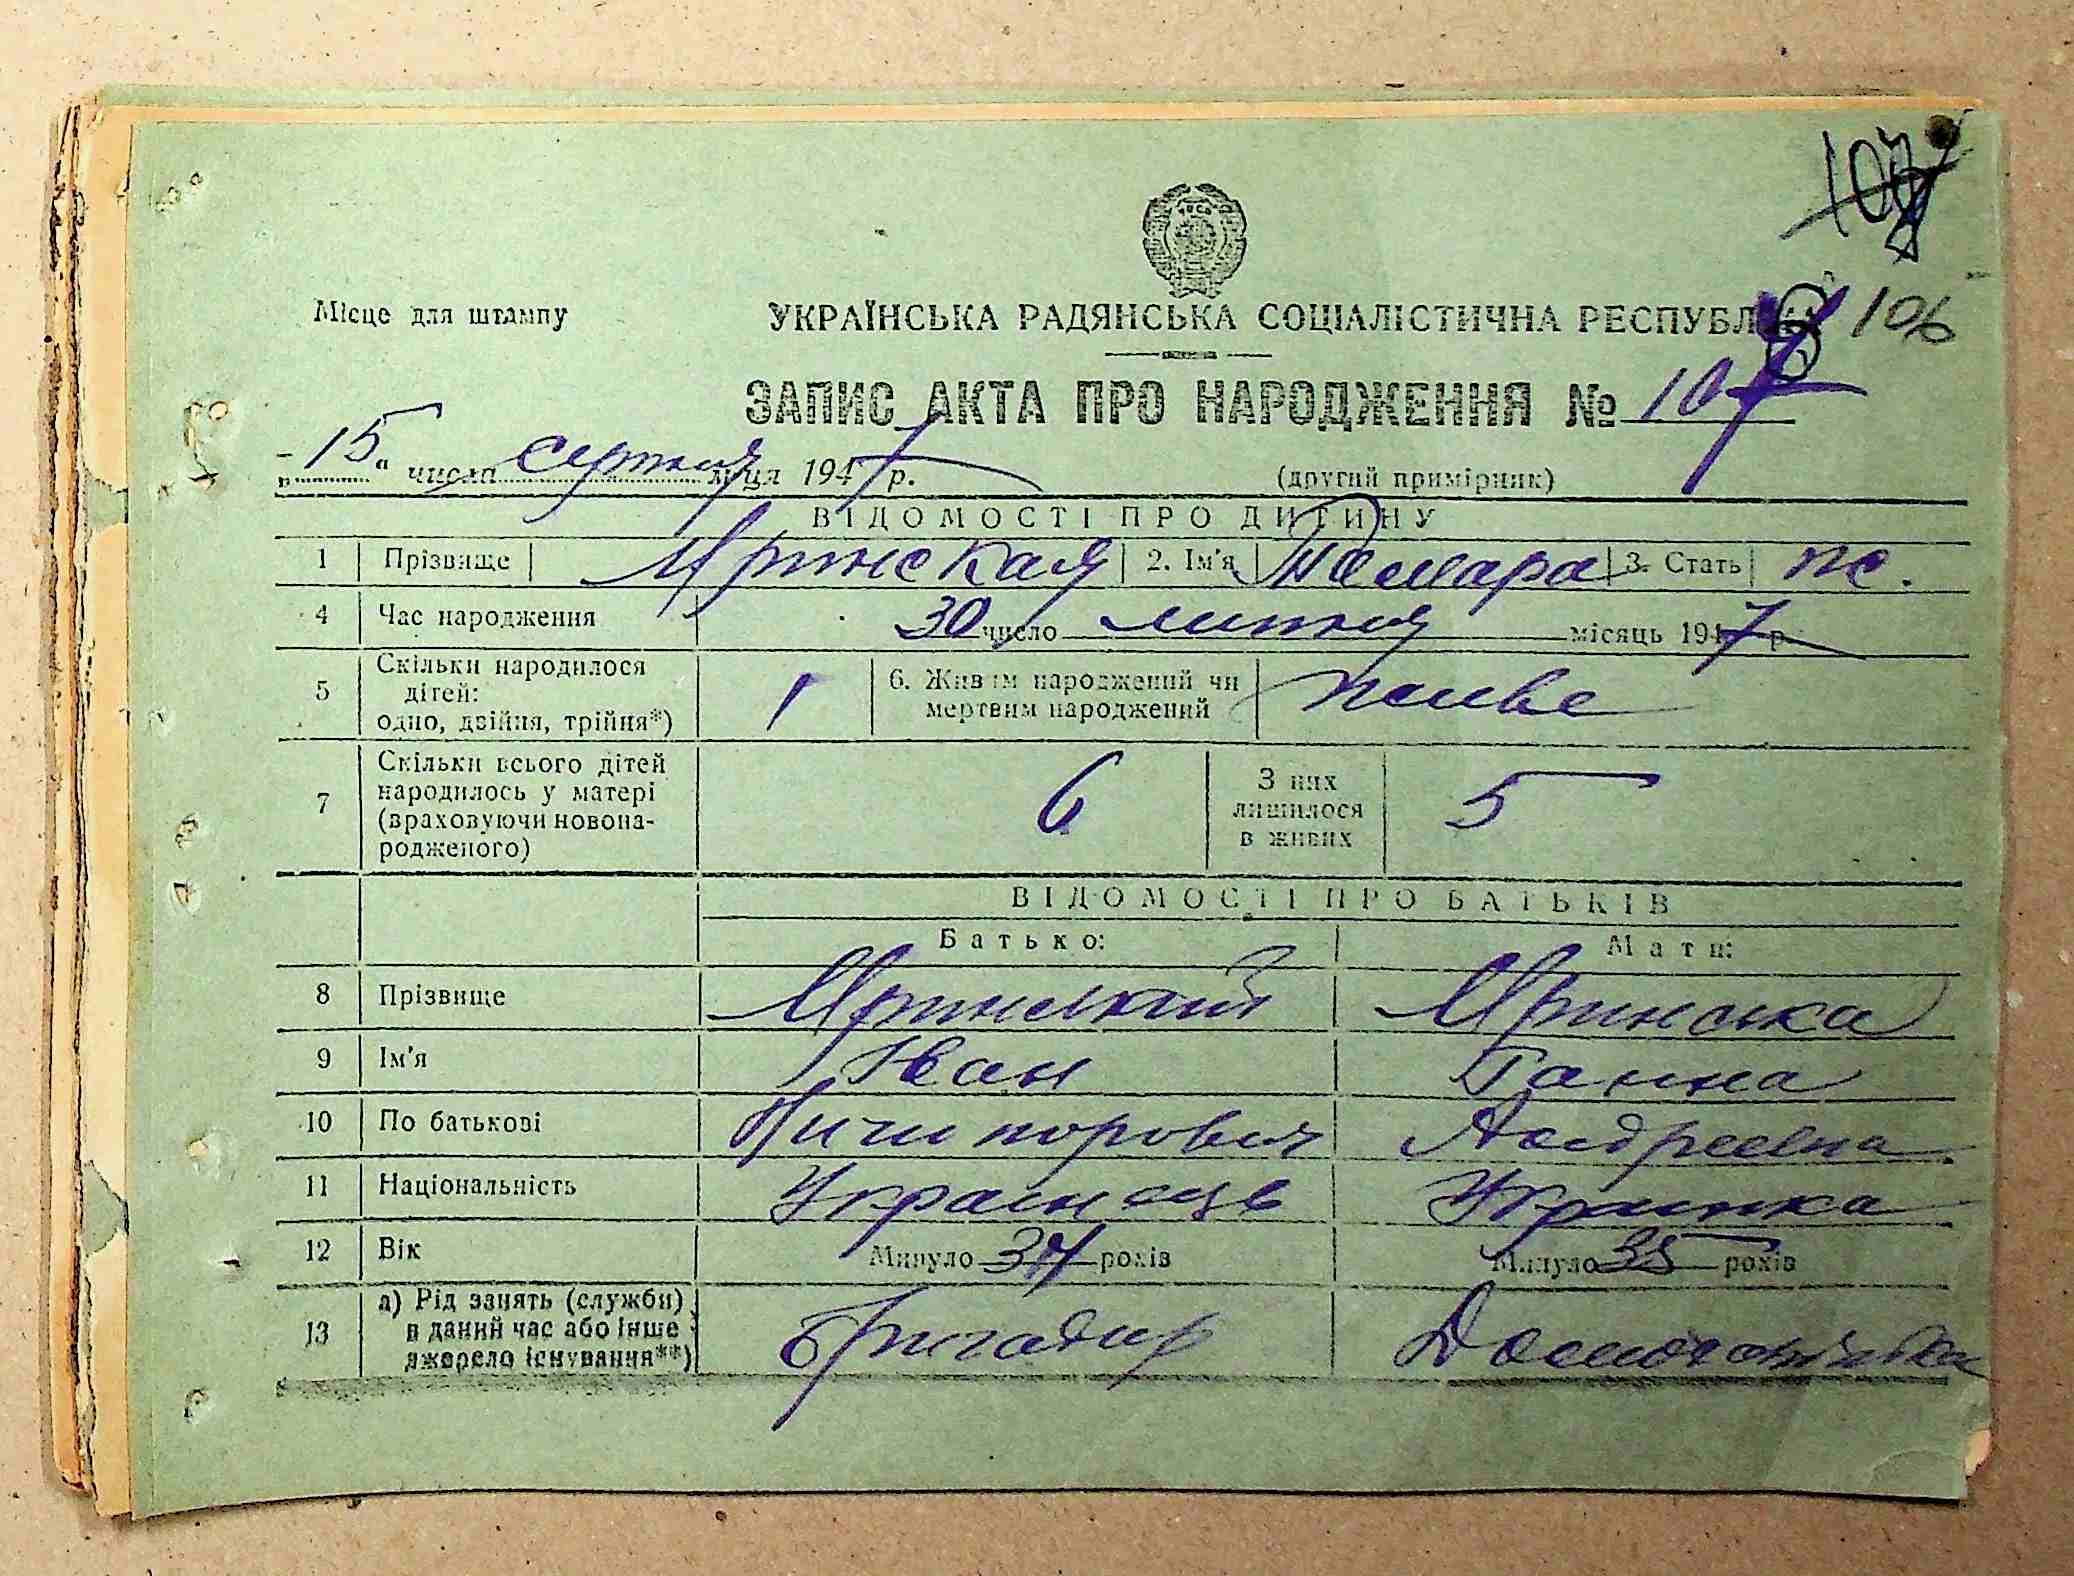 Місце для штампу
УКРАЇНСЬКА РАДЯНСЬКА СОЦІАЛІСТИЧНА РЕСПУБЛІКА 106
ЗАПИС АКТА ПРО НАРОДЖЕННЯ № 107
„15“ числа серпня м-ця 1947 р. (другий примірник)
ВІДОМОСТІ ПРО ДИТИНУ
1 Прізвище Яринская 2. Ім'я Тамара 3. Стать ж.
4 Час народження 30 число липня місяць 1947 р.
5 Скільки народилося дітей: одно, двійня, трійня*) 1 6. Живим народжений чи мертвим народжений живе
7 Скільки всього дітей народилось у матері (враховуючи новонародженого) 6 З них лишилося в живих 5
ВІДОМОСТІ ПРО БАТЬКІВ
Батько: Мати:
8 Прізвище Яринский Яринська
9 Ім'я Іван Ганна
10 По батькові Ничипорович Андреевна
11 Національність Украинець Украинка
12 Вік Минуло 37 років Минуло 35 років
13 а) Рід занять (служби) в даний час або інше джерело існування**) Бригадир